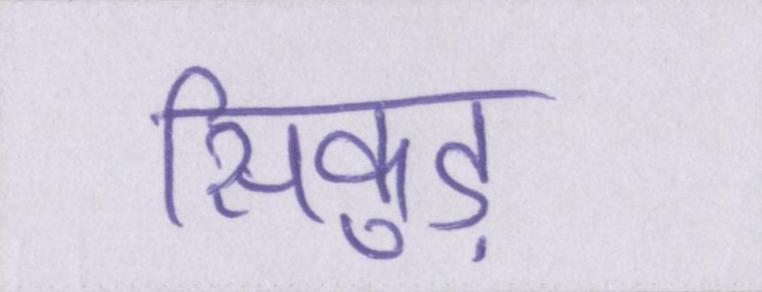 सिकुड़